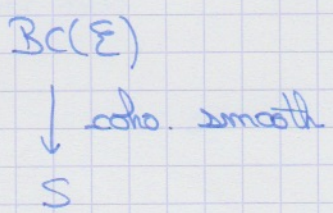 BC(ℰ)
↓ coho. smooth
S